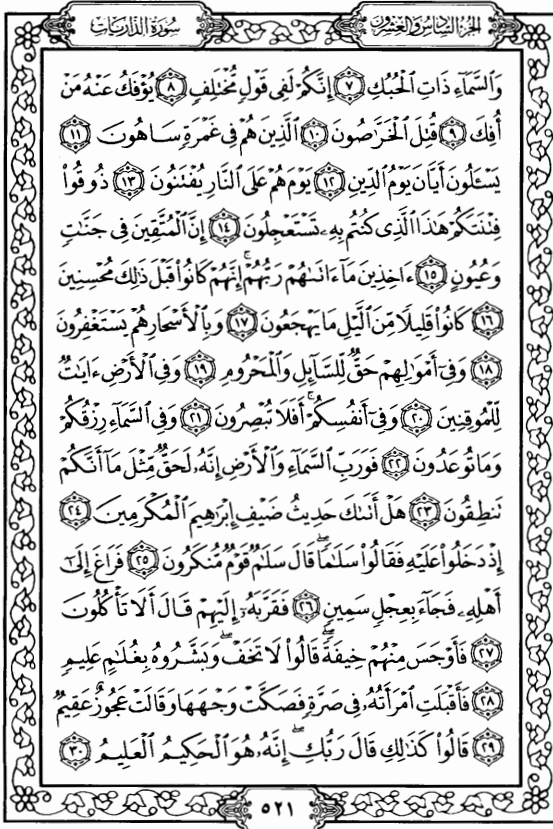 سورة الذاريات
الجزء السادس والعشرون
وَٱلسَّمَآءِ ذَاتِ ٱلۡحُبُكِ ٧ إِنَّكُمۡ لَفِي قَوۡلٖ مُّخۡتَلِفٖ ٨ يُؤۡفَكُ عَنۡهُ مَنۡ
أُفِكَ ٩ قُتِلَ ٱلۡخَرَّٰصُونَ ١٠ ٱلَّذِينَ هُمۡ فِي غَمۡرَةٖ سَاهُونَ ١١
يَسۡـَٔلُونَ أَيَّانَ يَوۡمُ ٱلدِّينِ ١٢ يَوۡمَ هُمۡ عَلَى ٱلنَّارِ يُفۡتَنُونَ ١٣ ذُوقُواْ
فِتۡنَتَكُمۡ هَٰذَا ٱلَّذِي كُنتُم بِهِۦ تَسۡتَعۡجِلُونَ ١٤ إِنَّ ٱلۡمُتَّقِينَ فِي جَنَّٰتٖ
وَعُيُونٍ ١٥ ءَاخِذِينَ مَآ ءَاتَىٰهُمۡ رَبُّهُمۡۚ إِنَّهُمۡ كَانُواْ قَبۡلَ ذَٰلِكَ مُحۡسِنِينَ
١٦ كَانُواْ قَلِيلٗا مِّنَ ٱلَّيۡلِ مَا يَهۡجَعُونَ ١٧ وَبِٱلۡأَسۡحَارِ هُمۡ يَسۡتَغۡفِرُونَ
١٨ وَفِيٓ أَمۡوَٰلِهِمۡ حَقّٞ لِّلسَّآئِلِ وَٱلۡمَحۡرُومِ ١٩ وَفِي ٱلۡأَرۡضِ ءَايَٰتٞ
لِّلۡمُوقِنِينَ ٢٠ وَفِيٓ أَنفُسِكُمۡۚ أَفَلَا تُبۡصِرُونَ ٢١ وَفِي ٱلسَّمَآءِ رِزۡقُكُمۡ
وَمَا تُوعَدُونَ ٢٢ فَوَرَبِّ ٱلسَّمَآءِ وَٱلۡأَرۡضِ إِنَّهُۥ لَحَقّٞ مِّثۡلَ مَآ أَنَّكُمۡ
تَنطِقُونَ ٢٣ هَلۡ أَتَىٰكَ حَدِيثُ ضَيۡفِ إِبۡرَٰهِيمَ ٱلۡمُكۡرَمِينَ ٢٤
إِذۡ دَخَلُواْ عَلَيۡهِ فَقَالُواْ سَلَٰمٗاۖ قَالَ سَلَٰمٞ قَوۡمٞ مُّنكَرُونَ ٢٥ فَرَاغَ إِلَىٰٓ
أَهۡلِهِۦ فَجَآءَ بِعِجۡلٖ سَمِينٖ ٢٦ فَقَرَّبَهُۥٓ إِلَيۡهِمۡ قَالَ أَلَا تَأۡكُلُونَ
٢٧ فَأَوۡجَسَ مِنۡهُمۡ خِيفَةٗۖ قَالُواْ لَا تَخَفۡۖ وَبَشَّرُوهُ بِغُلَٰمٍ عَلِيمٖ
٢٨ فَأَقۡبَلَتِ ٱمۡرَأَتُهُۥ فِي صَرَّةٖ فَصَكَّتۡ وَجۡهَهَا وَقَالَتۡ عَجُوزٌ عَقِيمٞ
٢٩ قَالُواْ كَذَٰلِكِ قَالَ رَبُّكِۖ إِنَّهُۥ هُوَ ٱلۡحَكِيمُ ٱلۡعَلِيمُ ٣٠
٥٢١